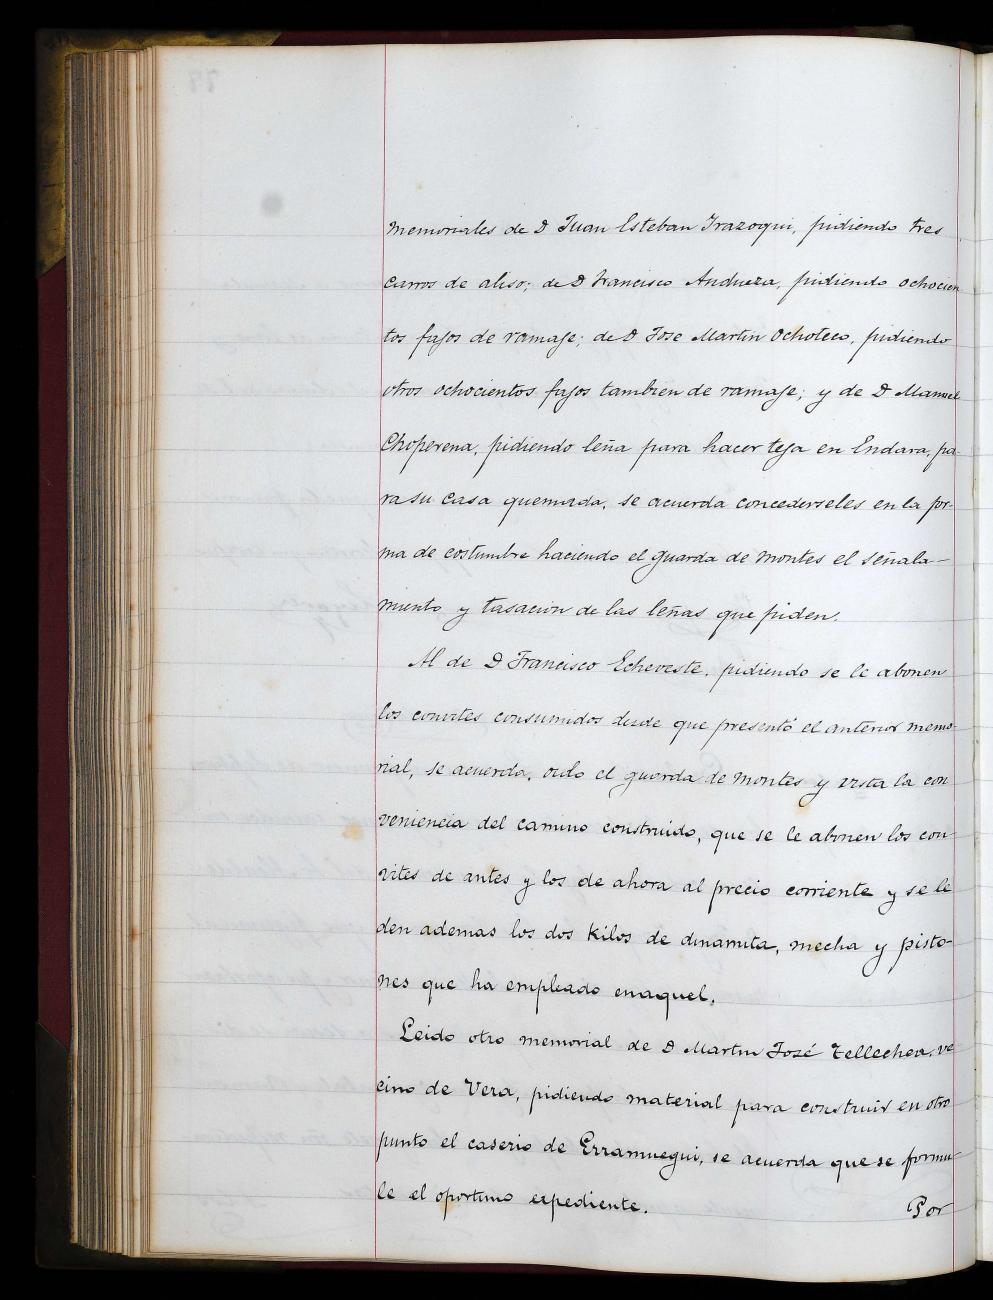 memoriales de D Juan Esteban Irazoqui, pidiendo tres
carros de aliso; de D Francisco Andueza, pidiendo ochocien
tos fajos de ramaje; de D Jose Martin Ochoteco, pidiendo
otros ochocientos fajos tambien de ramaje; y de D Manuel
Choperena, pidiendo leña para hacer teja en Endara, pa-
ra su casa quemada, se acuerda concederseles en la for-
ma de costumbre haciendo el guarda de montes el señala-
miento y tasacion de las leñas que piden.
Al de D Francisco Echeveste, pidiendo se le abonen
los convites consumidos desde que presentó el anterior memo-
rial, se acuerda, oido el guarda de montes y vista la con
veniencia del camino construido, que se le abonen los con-
vites de antes y los de ahora al precio corriente y se le
den ademas los dos kilos de dinamita, mecha y pisto-
nes que ha empleado en aquel.
Leido otro memorial de D Martin José Tellechea, ve-
cino de Vera, pidiendo material para construir en otro
punto el caserio de Erramuegui, se acuerda que se formu-
le el oportuno expediente.
Por